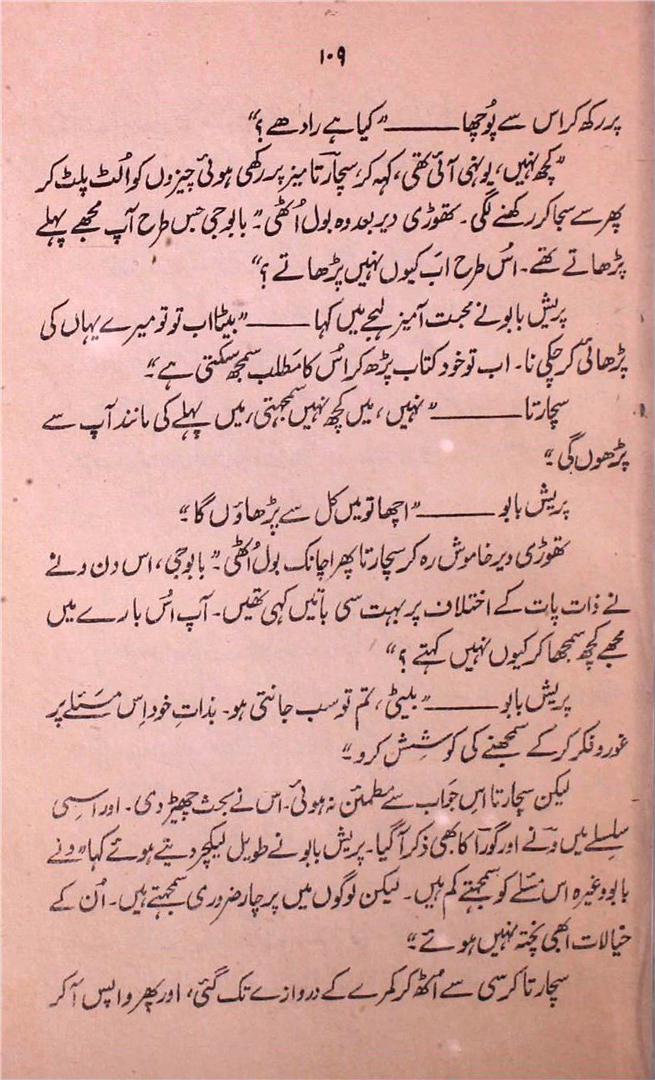 ۱۰۹
پر رکھ کر اس سے پُوچھا ——— ”کیا ہے رادھے؟“
”کچھ نہیں، یونہی آئی تھی، کہہ کر، سچارتا میز پر رکھی ہوئی چیزوں کو اُلٹ پلٹ کر
پھر سے سجا کر رکھنے لگی۔ تھوڑی دیر بعد وہ بول اُٹھی۔” بابوجی جس طرح آپ مجھے پہلے
پڑھاتے تھے۔ اسُ طرح اَب کیوں نہیں پڑھاتے؟“
پریش بابو نے محبت آمیز لہجے میں کہا ——— ”بیٹا اب تو تو میرے یہاں کی
پڑھائی کر چکی نا۔ اب تو خود کتاب پڑھ کر اسُ کا مَطلب سمجھ سکتی ہے“۔
سچارتا ——— ”نہیں، میں کچھ نہیں سمجھتی، میں پہلے کی مانند آپ سے
پڑھوں گی۔“
پریش بابو ——— ”اچھا تو میں کل سے پڑھاؤں گا۔“
تھوڑی دیر خاموش رہ کر سچارتا پھر اچانک بول اُٹھی۔” بابوجی، اس دن ونے
نے ذات پات کے اختلاف پر بہت سی باتیں کہی تھیں۔ آپ اسُ بارے میں
مجھے کچھ سمجھا کر کیوں نہیں کہتے؟“
پریش بابو ——— ”بیٹی، تم تو سب جانتی ہو۔ بذاتِ خود اِس مَسَئلے پر
غور و فکر کر کے سمجھنے کی کوشِش کرو۔“
لیکن سچارتا اِس جَواب سے مُطمئن نہ ہوئی۔ اس نے بحث چھیڑ دی۔ اور اسی
سلسلے میں ونے اور گورا کا بھی ذکر آ گیا۔ پریش بابو نے طویل لیکچر دیتے ہوئے کہا ”ونے
بابو وغیرہ اس مسئلے کو سمجھتے کم ہیں۔ لیکن لوگوں میں پرچار ضروری سمجھتے ہیں۔ اُن کے
خیالات ابھی پختہ نہیں ہوئے۔“
سچارتا کرسی سے اُٹھ کر کمرے کے دروازے تک گئی، اور پھر واپس آ کر